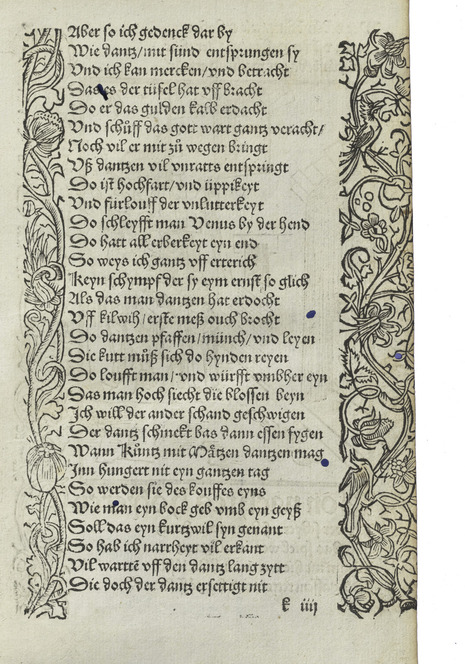 Aber so ich gedenck dar by
Wie dantz/mit sünd entsprungen sy
Vnd ich kan mercken/vnd betracht
Das es der tüfel hat vff bracht
Do er das gulden kalb erdacht
Vnd schůff das gott wart gantz veracht/
Noch vil er mit zů wegen bringt
Vß dantzen vil vnratts entspringt
Do ist hochfart/vnd üppikeyt
Vnd fürlouff der vnlutterkeyt
Do schleyfft man Venus by der hend
Do hatt all erberkeyt eyn end
So weys ich gantz vff erterich
Keyn schympf der sy eym ernst so glich
Als das man dantzen hat erdocht
Vff kilwih/erste meß ouch brocht
Do dantzen pfaffen/münch/vnd leyen
Die kutt můß sich do hynden reyen
Do loufft man/vnd würfft vmbher eyn
Das man hoch siecht die blossen beyn
Ich will der ander schand geschwigen
Der dantz schmeckt bas dann essen fygen
Wann Kůntz mit Mätzen dantzen mag
Inn hungert nit eyn gantzen tag
So werden sie des kouffes eyns
Wie man eyn bock geb vmb eyn geyß
Soll das eyn kurtzwil syn genant
So hab ich narrheyt vil erkant
Vil wartē vff den dantz lang zytt
Die doch der dantz ersettigt nit
k iiij